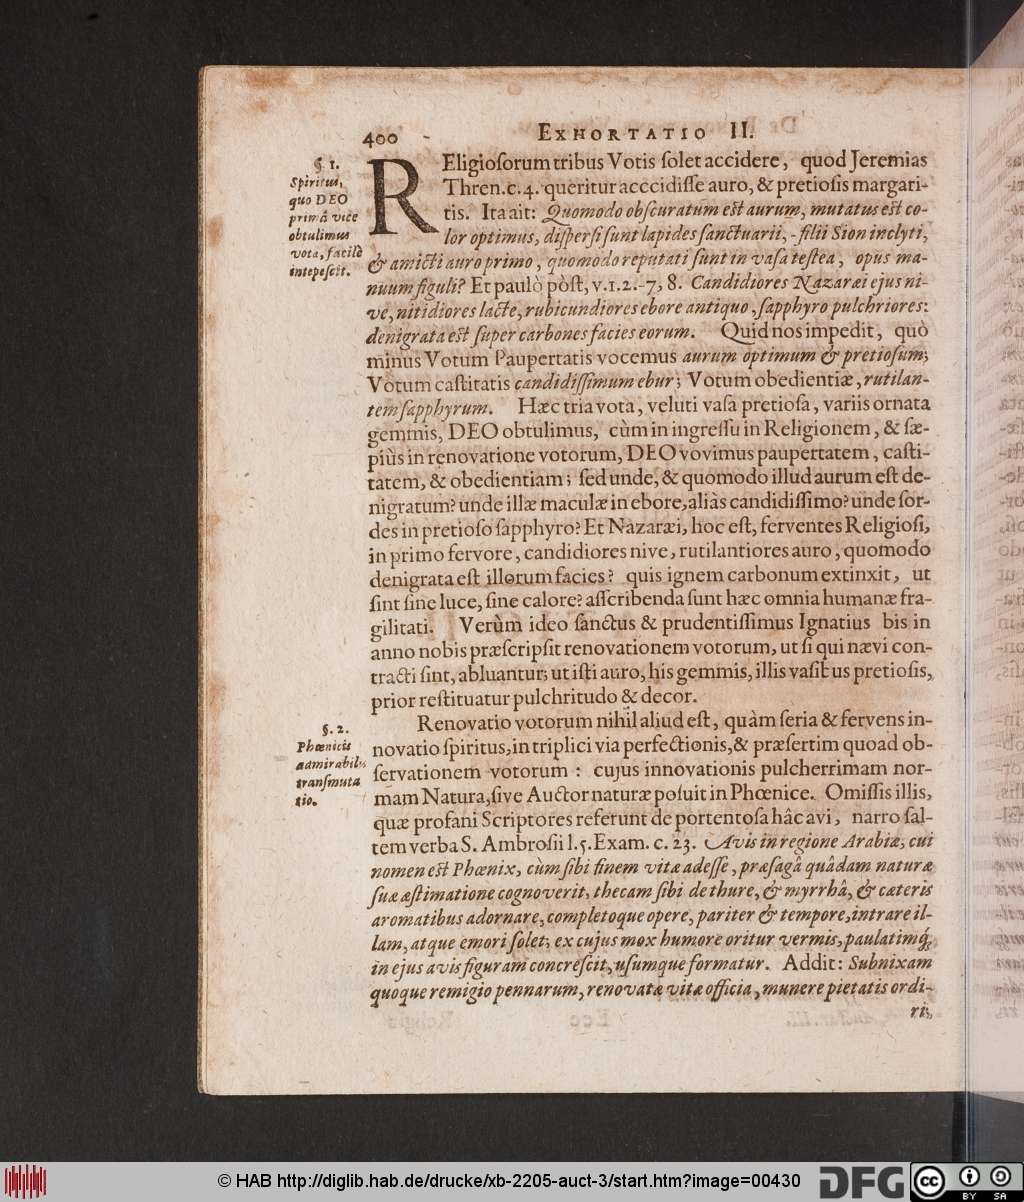 400 EXHORTATIO II.
§. 1.
Spiritus,
quo DEO
primâ vice
obtulimus
vota, facilè
intepescit.
REligiosorum tribus Votis solet accidere, quod Jeremias
Thren.c.4. queritur acccidisse auro, & pretiosis margari-
tis. Ita ait: Quomodo obscuratum est aurum, mutatus est co-
lor optimus, dispersi sunt lapides sanctuarii, -filii Sion inclyti,
& amicti auro primo, quomodo reputati sunt in vasa testea, opus ma-
nuum figuli? Et paulò pòst, v.1.2.-7, 8. Candidiores Nazaræi ejus ni-
ve, nitidiores lacte, rubicundiores ebore antiquo, sapphyro pulchriores:
denigrata est super carbones facies eorum. Quid nos impedit, quò
minus Votum Paupertatis vocemus aurum optimum & pretiosum;
Votum castitatis candidissimum ebur; Votum obedientiæ, rutilan-
tem sapphyrum. Hæc tria vota, veluti vasa pretiosa, variis ornata
gemmis, DEO obtulimus, cùm in ingressu in Religionem, & sæ-
piùs in renovatione votorum, DEO vovimus paupertatem, casti-
tatem, & obedientiam; sed unde, & quomodo illud aurum est de-
nigratum? unde illæ maculæ in ebore, aliàs candidissimo? unde sor-
des in pretioso sapphyro? Et Nazaræi, hoc est, ferventes Religiosi,
in primo fervore, candidiores nive, rutilantiores auro, quomodo
denigrata est illorum facies? quis ignem carbonum extinxit, ut
sint sine luce, sine calore? asscribenda sunt hæc omnia humanæ fra-
gilitati. Verùm ideo sanctus & prudentissimus Ignatius bis in
anno nobis præscripsit renovationem votorum, ut si qui nævi con-
tracti sint, abluantur; ut isti auro, his gemmis, illis vasibus pretiosis,
prior restituatur pulchritudo & decor.
§. 2.
Phœnicis
admirabilis
transmuta
tio.
Renovatio votorum nihil aliud est, quàm seria & fervens in-
novatio spiritus, in triplici via perfectionis, & præsertim quoad ob-
servationem votorum: cujus innovationis pulcherrimam nor-
mam Natura, sive Auctor naturæ posuit in Phœnice. Omissis illis,
quæ profani Scriptores referunt de portentosa hâc avi, narro sal-
tem verba S. Ambrosii l.5. Exam. c. 23. Avis in regione Arabiæ, cui
nomen est Phœnix, cùm sibi finem vitæ adesse, præsagâ quâdam naturæ
suæ æstimatione cognoverit, thecam sibi de thure, & myrrhâ, & cæteris
aromatibus adornare, completoque opere, pariter & tempore, intrare il-
lam, atque emori solet; ex cujus mox humore oritur vermis, paulatimq́;
in ejus avis figuram concrescit, usumque formatur. Addit: Subnixam
quoque remigio pennarum, renovatæ vitæ officia, munere pietatis ordi-
ri;
© HAB http://diglib.hab.de/drucke/xb-2205-auct-3/start.htm?image=00430
DFG
cc BY SA